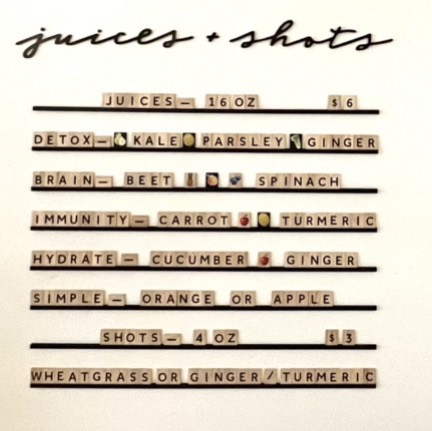 juices + shots
JUICES— 16 OZ $6
DETOX— KALE PARSLEY GINGER
BRAIN— BEET SPINACH
IMMUNITY— CARROT TURMERIC
HYDRATE— CUCUMBER GINGER
SIMPLE— ORANGE OR APPLE
SHOTS— 4 OZ $3
WHEATGRASS OR GINGER/TURMERIC